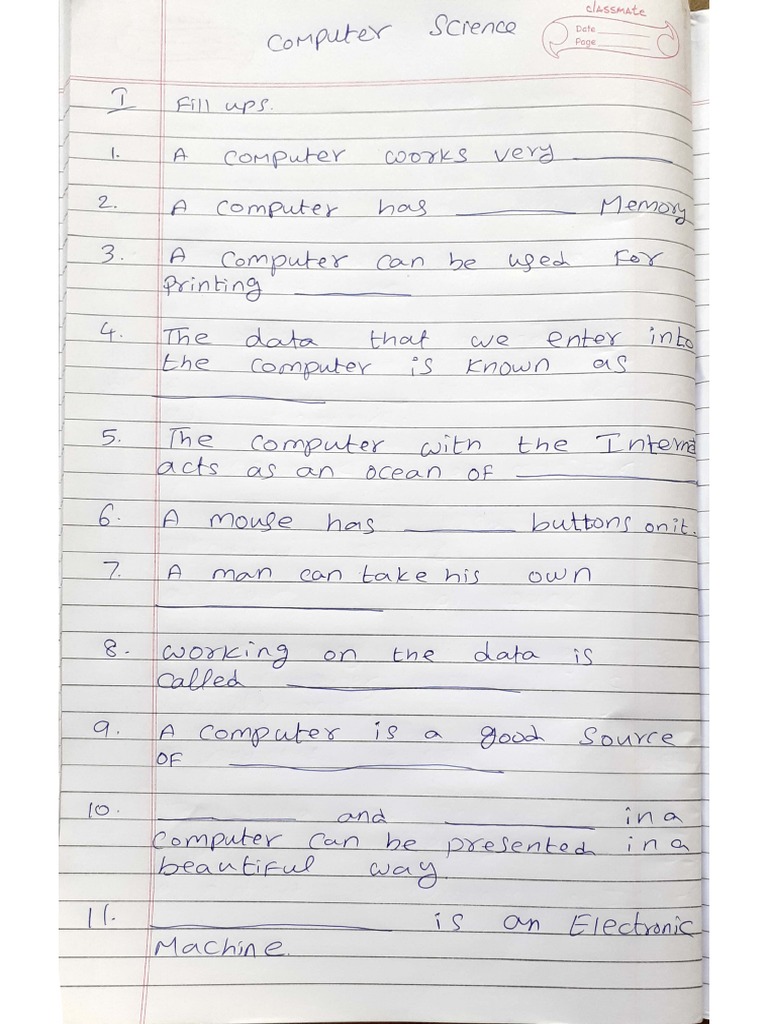 classmate
Date
Page
Computer Science
I Fill ups.
1. A computer works very ________
2. A computer has ________ Memory
3. A computer can be used for
printing ________
4. The data that we enter into
the computer is known as
________
5. The computer with the Interne
acts as an ocean of ________
6. A mouse has ________ buttons on it.
7. A man can take his own
________
8. Working on the data is
called ________
9. A computer is a good source
of ________
10. ________ and ________ in a
computer can be presented in a
beautiful way.
11. ________ is an Electronic
Machine.